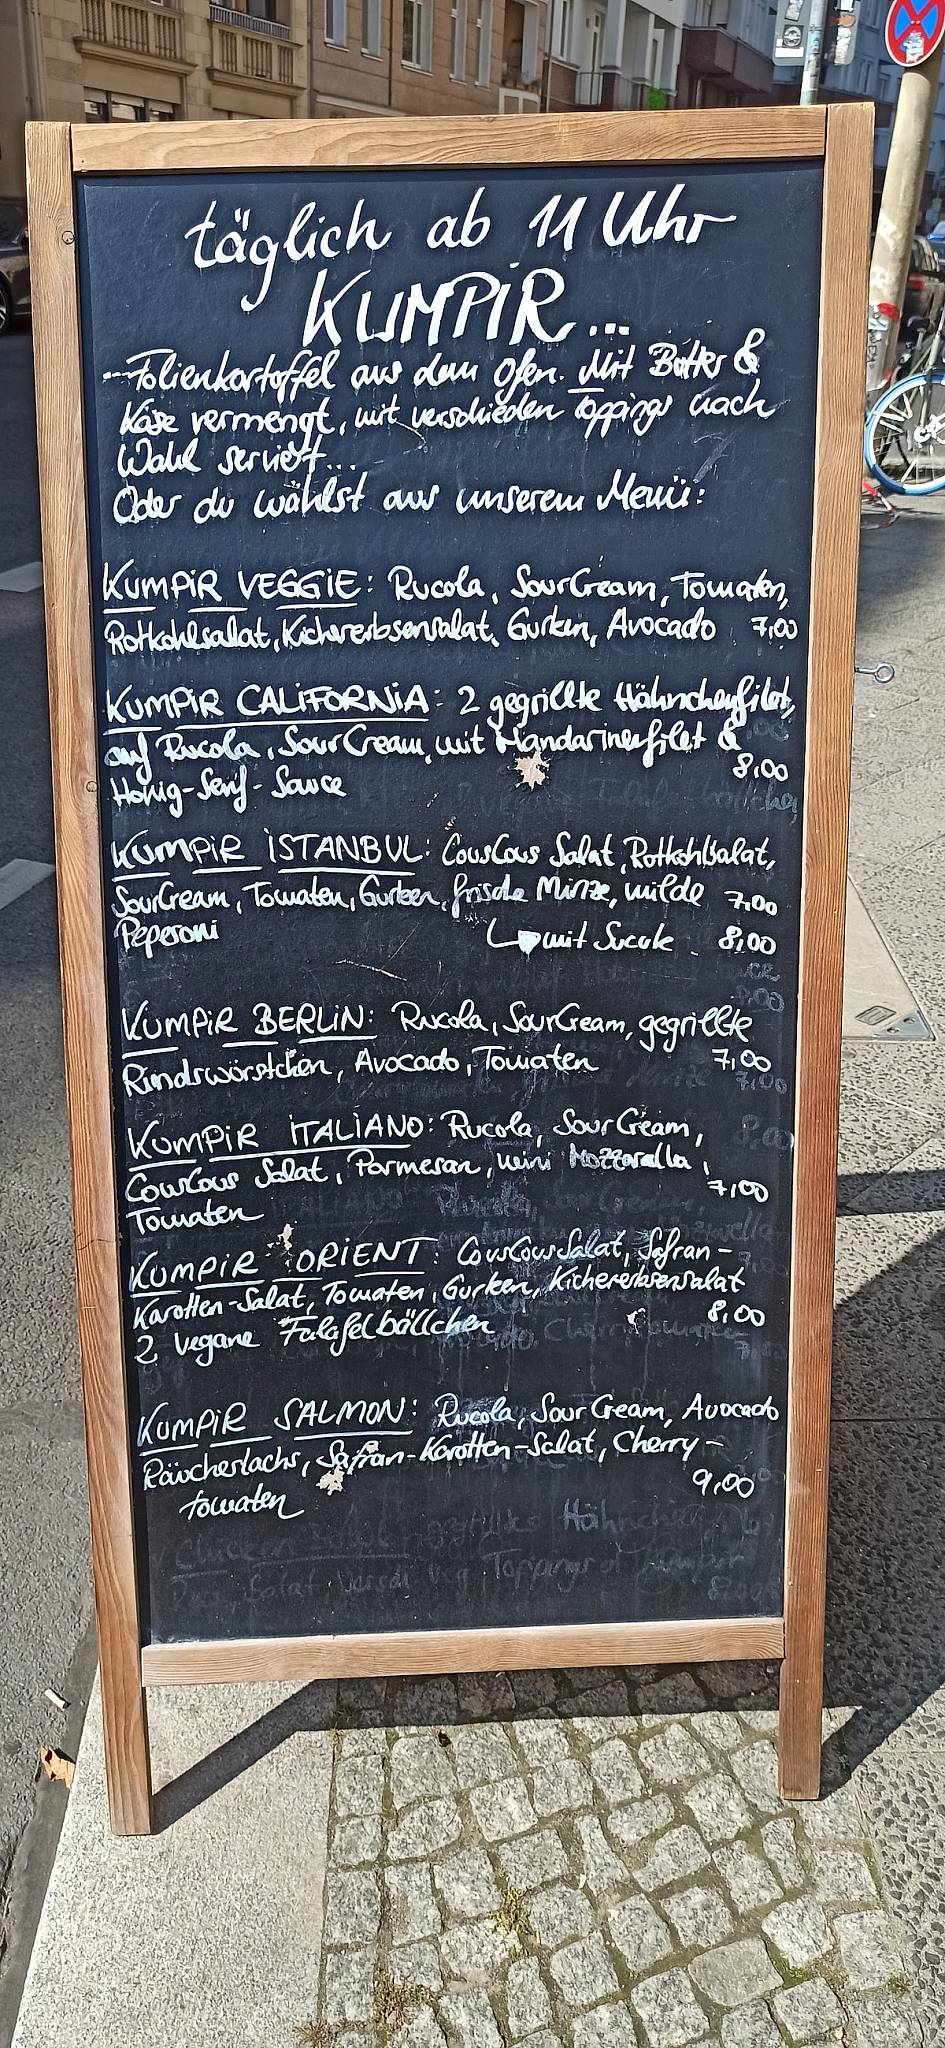 täglich ab 11 Uhr
KUMPiR...
...Folienkartoffel aus dem Ofen. Mit Butter &
Käse vermengt, mit verschieden Toppings nach
Wahl serviert...
Oder du wählst aus unserem Menü:
KUMPiR VEGGiE: Rucola, SourCream, Tomaten,
Rotkohlsalat, Kichererbsensalat, Gurken, Avocado 7,00
KUMPiR CALiFORNiA: 2 gegrillte Hähnchenfilet,
auf Rucola, SourCream, mit Mandarinenfilet &
8,00
Honig-Senf-Sauce
KUMPiR iSTANBUL: CousCous Salat, Rotkohlsalat,
SourCream, Tomaten, Gurken, frische Minze, milde 7,00
Peperoni mit Sucuk 8,00
KUMPiR BERLiN: Rucola, SourCream, gegrillte
Rindswürstchen, Avocado, Tomaten 7,00
KUMPiR iTALiANO: Rucola, SourCream,
CousCous Salat, Parmesan, mini Mozzarella,
7,00
Tomaten
KUMPiR ORiENT: CousCousSalat, Safran-
Karotten-Salat, Tomaten, Gurken, Kichererbsensalat
8,00
2 vegane Falafelbällchen
KUMPiR SALMON: Rucola, SourCream, Avocado
Räucherlachs, Safran-Karotten-Salat, Cherry-
9,00
tomaten